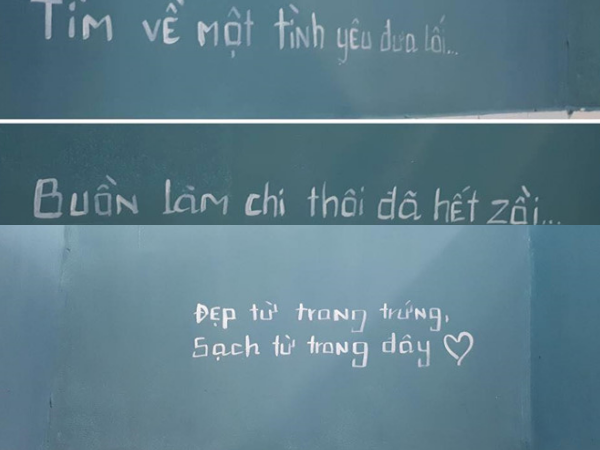 Tìm về một tình yêu đưa lối...
Buồn làm chi thôi đã hết zồi...
Đẹp từ trang trứng,
Sạch từ trang dây ♡